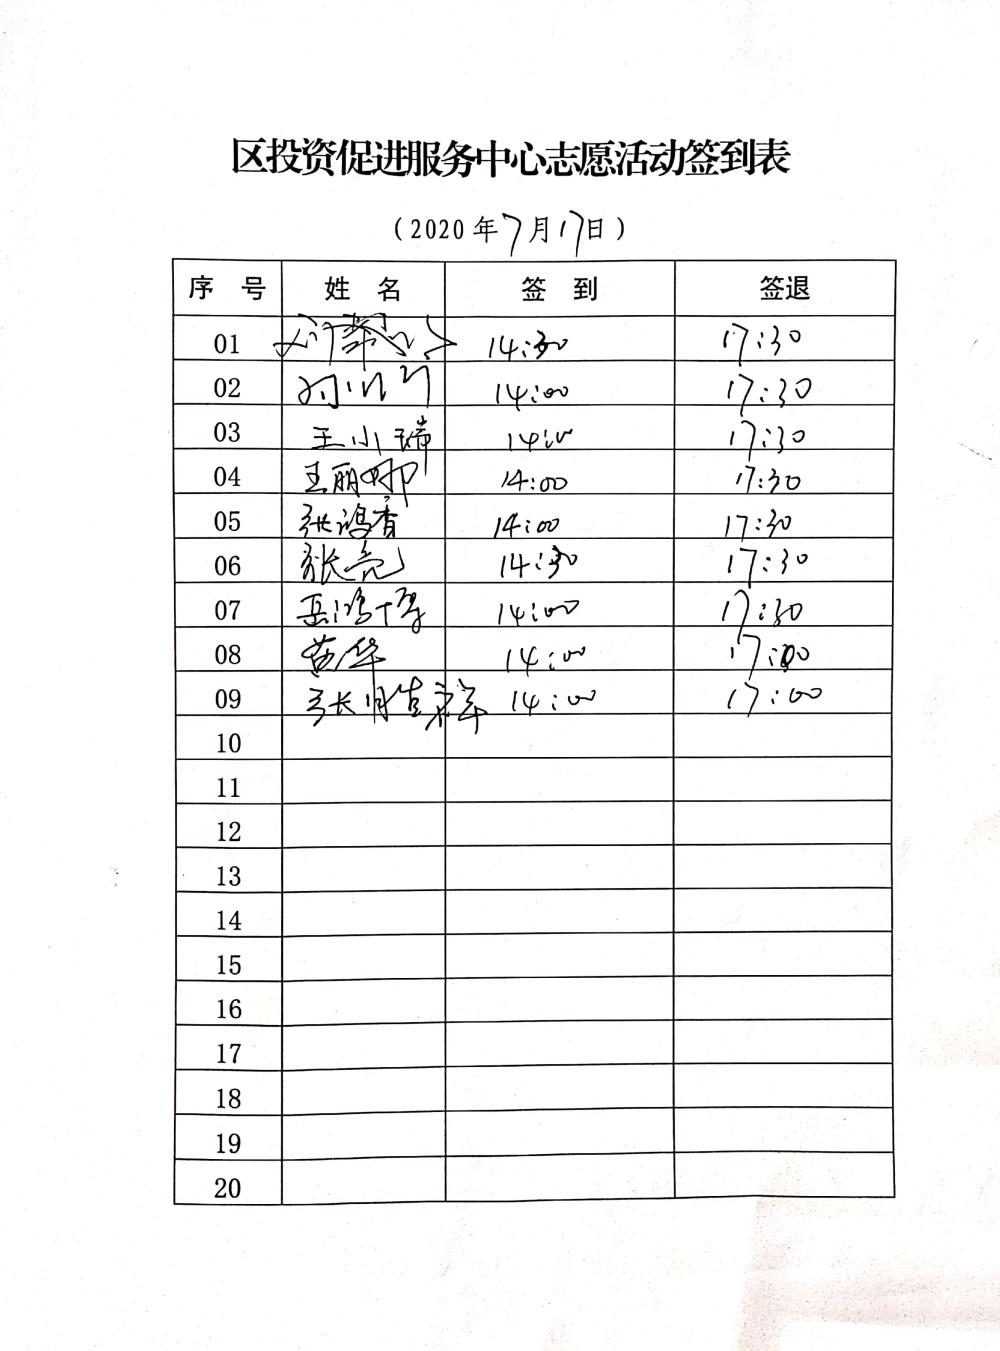 区投资促进服务中心志愿活动签到表
（2020年7月17日）
序 号 姓 名 签 到 签退
01 14:30 17:30
02 14:00 17:30
03 王小瑞 14:00 17:30
04 王丽娜 14:00 17:30
05 张鸿香 14:00 17:30
06 张亮 14:30 17:30
07 岳鸿 14:00 17:30
08 苗华 14:00 17:00
09 张 14:00 17:00
10
11
12
13
14
15
16
17
18
19
20